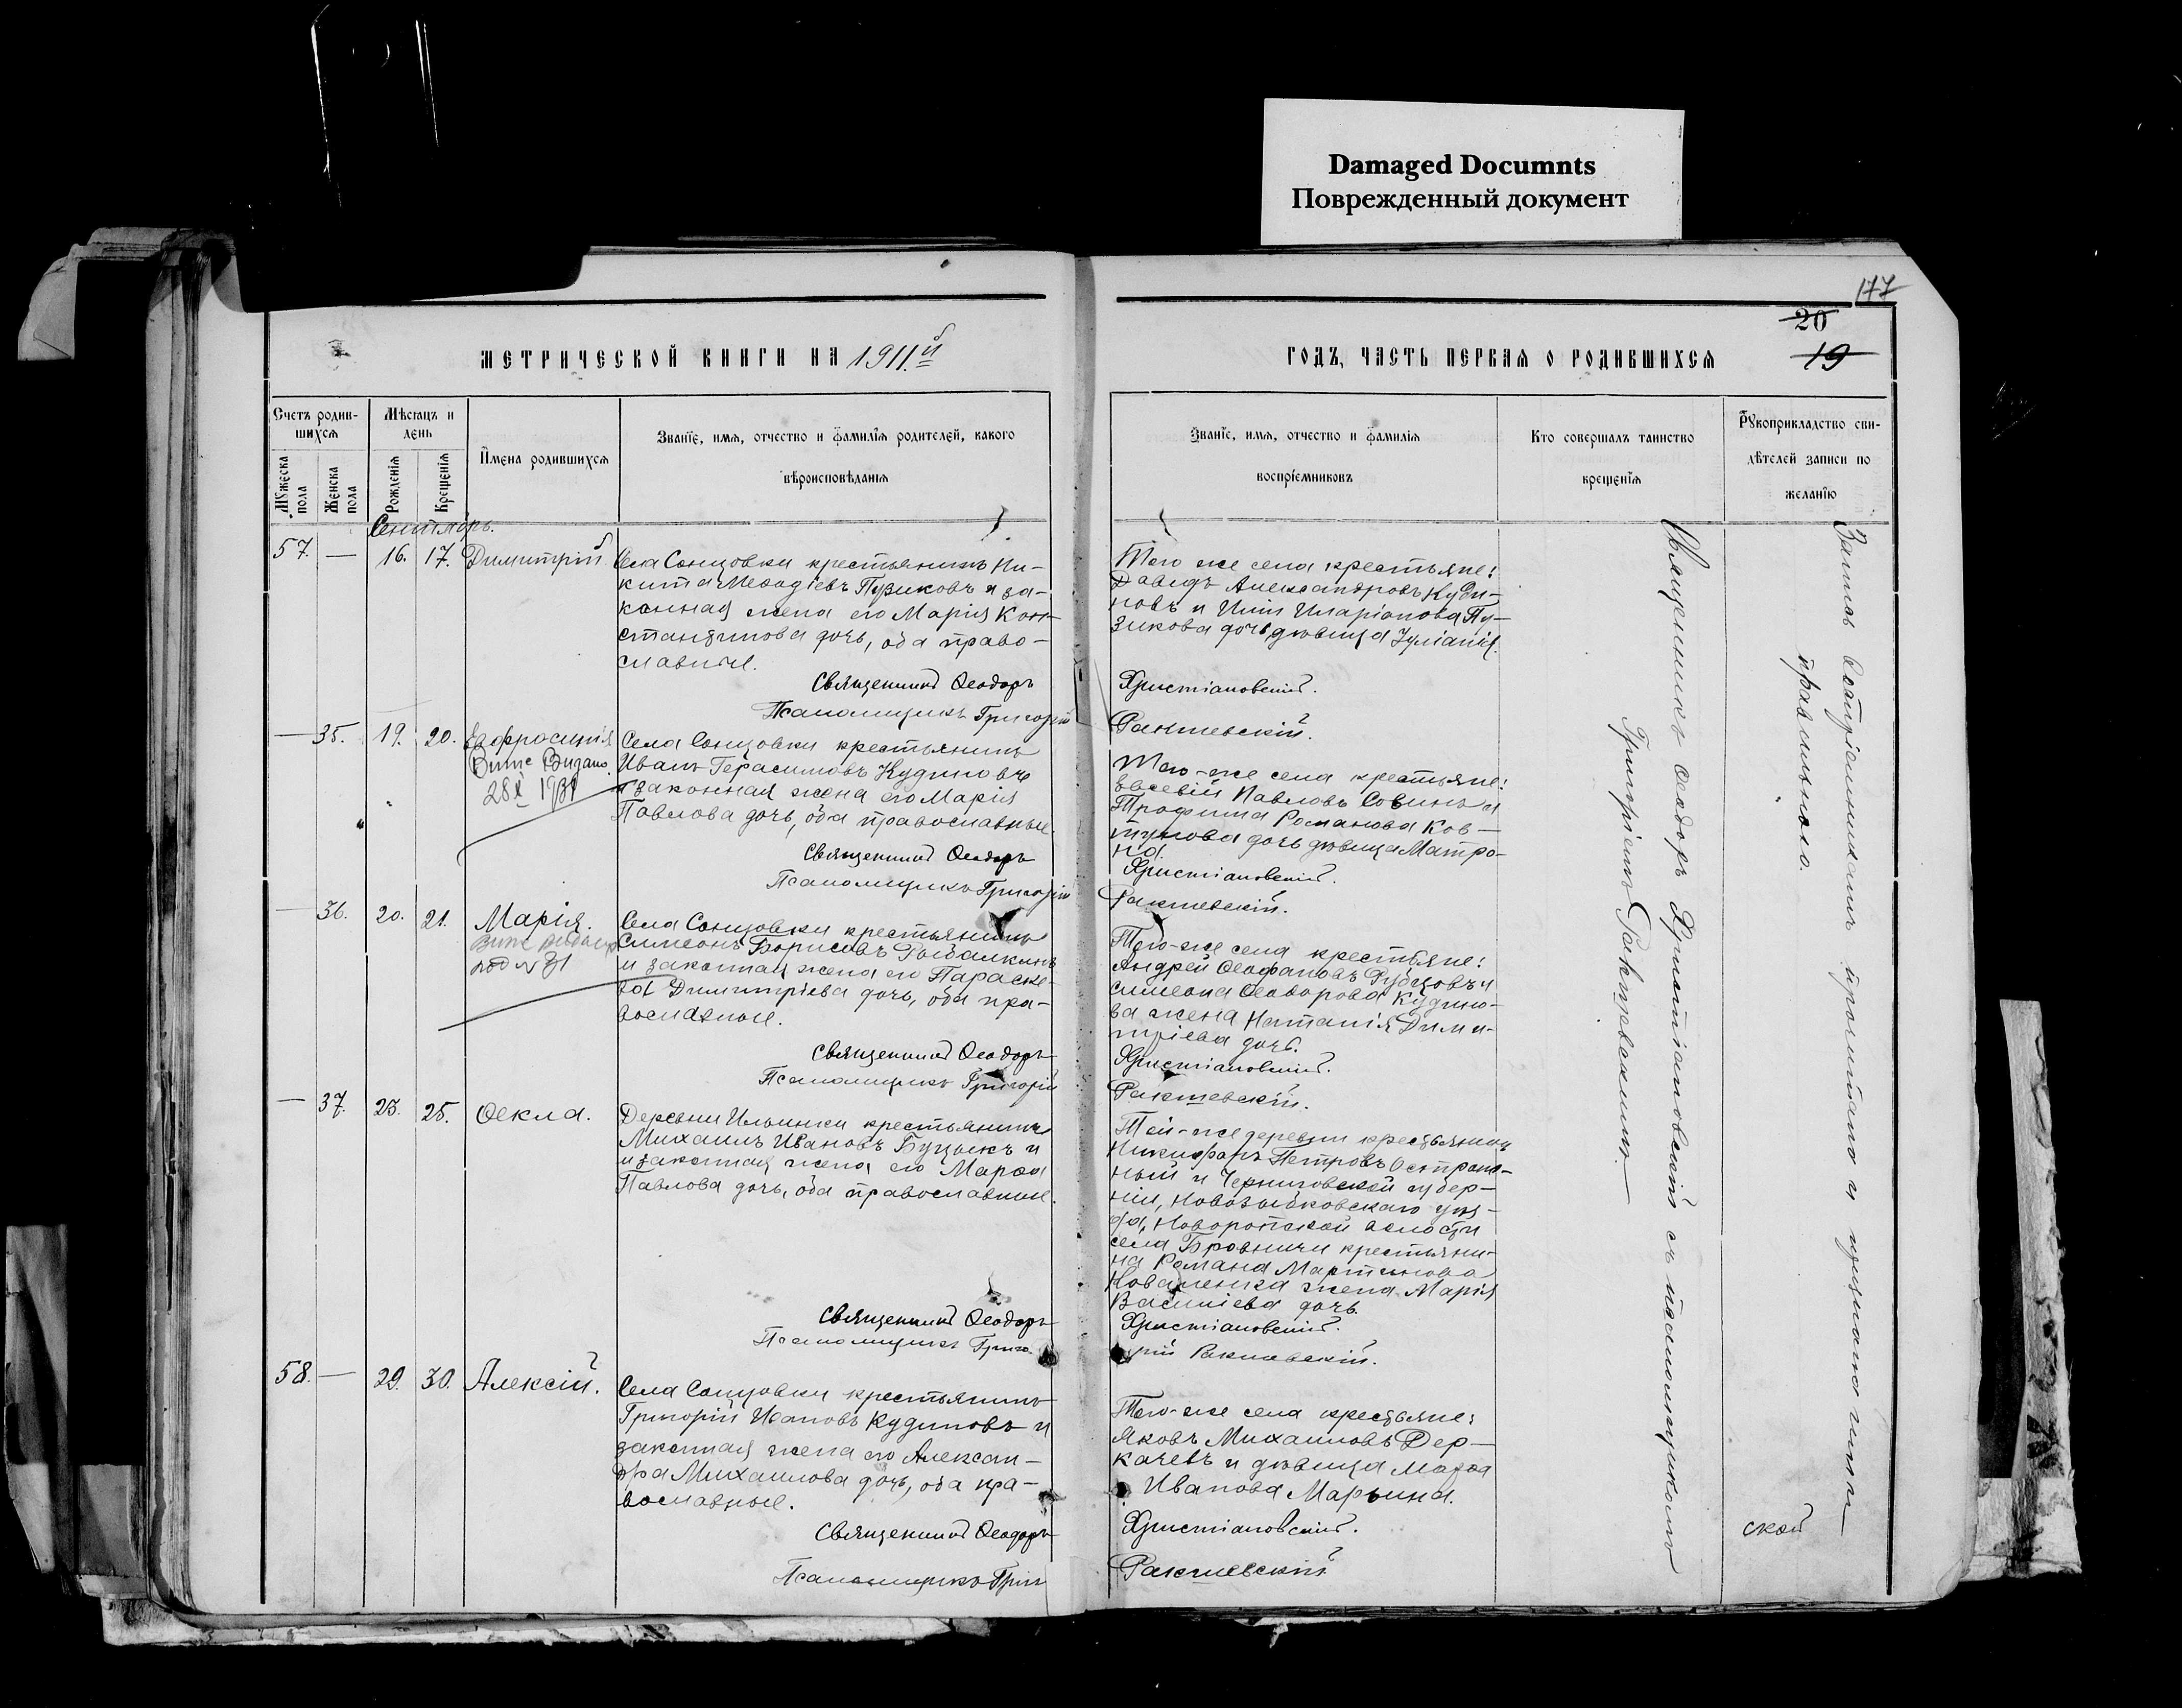 Damaged Documnts
Поврежденный документ
177
20
19
МЕТРИЧЕСКОЙ КНИГИ НА 1911й
ГОДЪ, ЧАСТЬ ПЕРВАЯ О РОДИВШИХСЯ
Счетъ родив-
шихся
Мужеска
пола
Женска
пола
Мѣсяцъ и
день
Рожденія
Крещенія
Имена родившихся
Званіе, имя, отчество и фамилія родителей, какого
вѣроисповѣданія
Званіе, имя, отчество и фамилія
воспріемниковъ
Кто совершалъ таинство
крещенія
Рукоприкладство сви-
дѣтелей записи по
желанію
Сентябрь.
57. — 16. 17. Димитрій
Села Сонцовки крестьянинъ Ни-
кита Меѳодіевъ Пузиковъ и за-
конная жена его Марія Кон-
стантинова дочь, оба право-
славные.
Священникъ Ѳеодоръ
Псаломщикъ Григорій
Того же села крестьяне:
Давидъ Александровъ Куди-
новъ и Иларіонова Пу-
зикова дочь девица Іуліанія.
Христіановскій.
Ракшевскій.
— 35. 19. 20. Евфросинія
28 X 1931
Села Сонцовки крестьянинъ
Иванъ Герасимовъ Кудиновъ
и законная жена его Марія
Павлова дочь, оба православные.
Священникъ Ѳеодоръ
Псаломщикъ Григорій
Того-же села крестьяне:
Евсевій Павловъ Совинъ и
Трофима Романова Ков-
тунова дочь девица Матро-
на.
Христіановскій.
Ракшевскій.
— 36. 20. 21. Марія.
Села Сонцовки крестьянинъ
Симеонъ Борисовъ Рыбалкинъ
и законная жена его Параске-
ва Димитріева дочь, оба пра-
вославные.
Священникъ Ѳеодоръ
Псаломщикъ Григорій
Того-же села крестьяне:
Андрей Ѳеофановъ Рубцовъ и
Симеона Ѳеодорова Кудино-
ва жена Наталія Дими-
тріева дочь.
Христіановскій.
Ракшевскій.
— 37. 23. 25. Ѳекла.
Деревни Ильинки крестьянинъ
Михаилъ Ивановъ Буцыкъ и
и законная жена его Марѳа
Павлова дочь, оба православные.
Священникъ Ѳеодоръ
Псаломщикъ Григо-
Той-же деревни крестьянинъ
Никифоръ Петровъ
и Черниговской губер-
ніи, Новозыбковскаго уѣз-
да, Новоропской волости
села Бровничи крестьяни-
на Романа Мартынова
Коваленка жена Марія
Василіева дочь.
Христіановскій.
рій Ракшевскій.
58. — 29. 30. Алексій.
Села Сонцовки крестьянинъ
Григорій Ивановъ Кудиновъ и
законная жена его Алексан-
дра Михаилова дочь, оба пра-
вославные.
Священникъ Ѳеодоръ
Псаломщикъ Григ
Того-же села крестьяне:
Яковъ Михаиловъ Дер-
качевъ и девица Марѳа
Иванова Марьина.
Христіановскій.
Ракшевскій
Священникъ Ѳеодоръ Христіановскій съ псаломщикомъ
Григоріемъ Ракшевскимъ.
Запись воспріемникамъ прочитана и признана ими
правильною.
ской